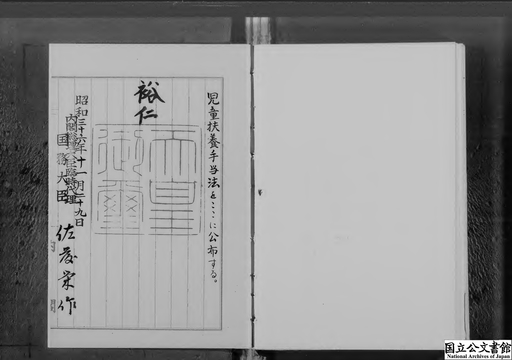 児童扶養手当法をここに公布する。
裕仁
天皇御璽
昭和三十六年十一月二十九日
内閣総理大臣臨時代理
国務大臣 佐藤栄作
国立公文書館
National Archives of Japan